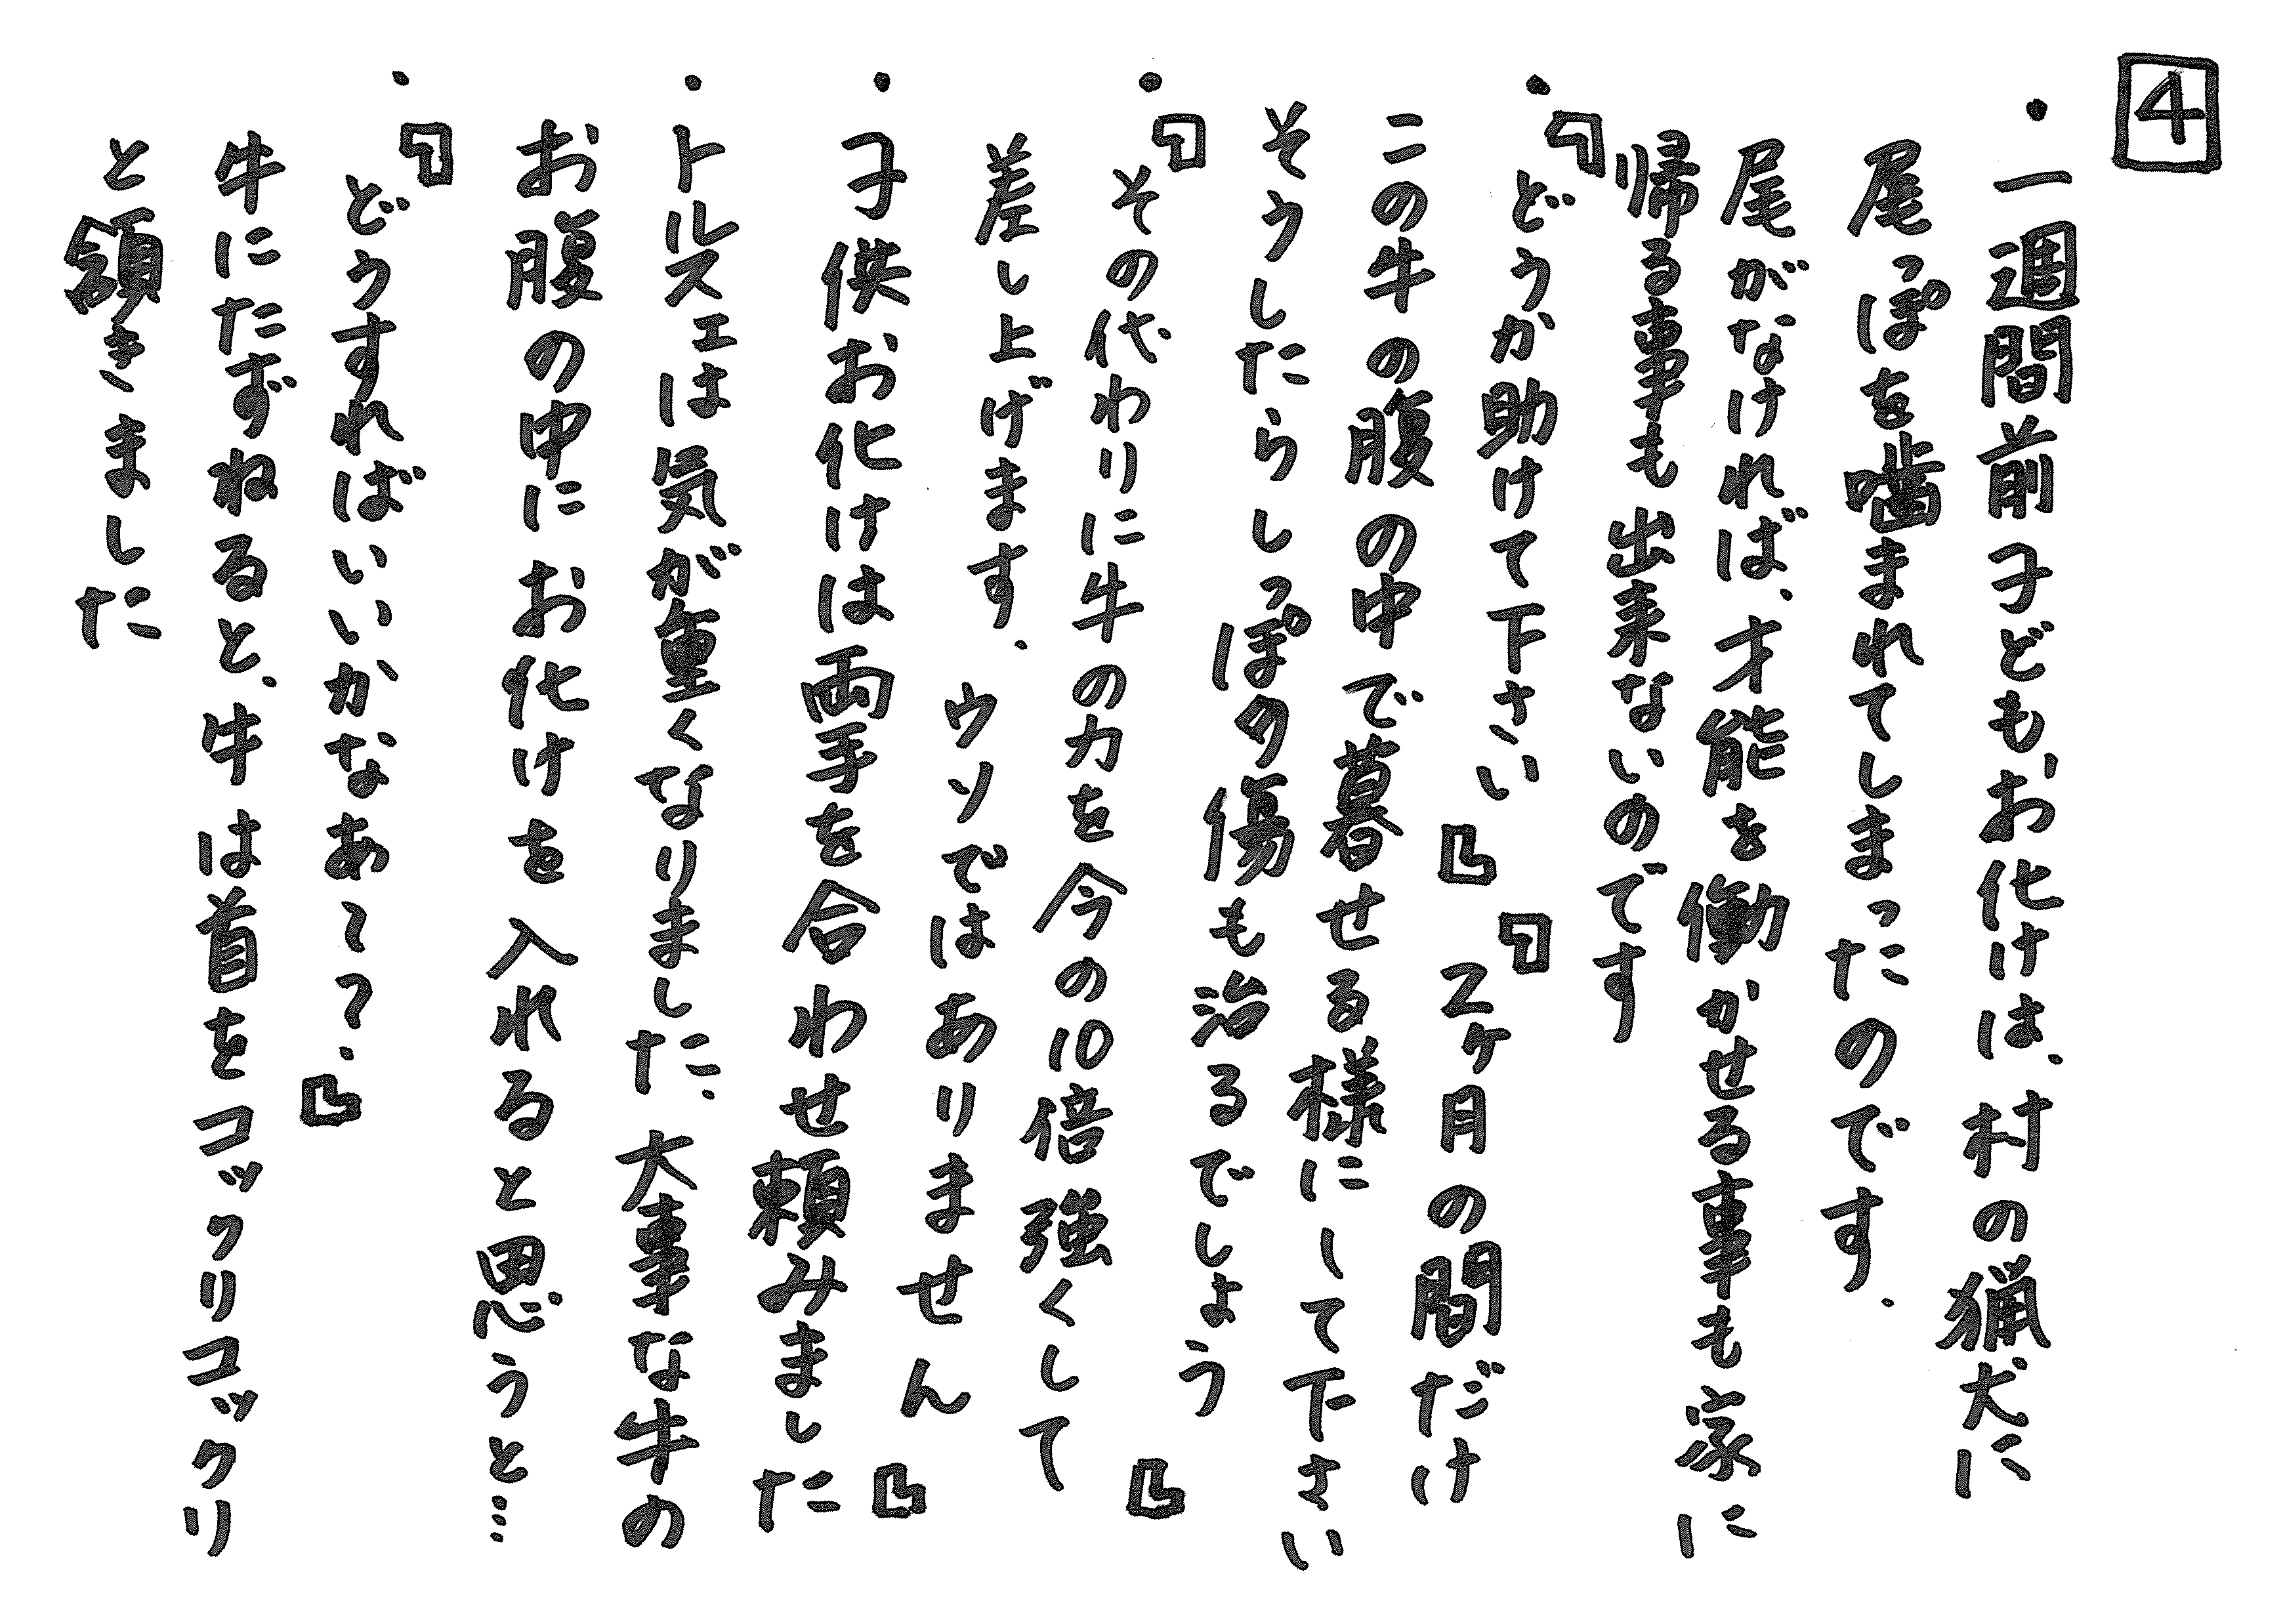 4
・一週間前子ども、お化けは、村の猟犬に
尾っぽを噛まれてしまったのです.
尾がなければ、才能を働かせる事も家に
帰る事も出来ないのです
・『どうか助けて下さい』『2ヶ月の間だけ
この牛の腹の中で暮せる様にして下さい
そうしたらしっぽの傷も治るでしょう』
・『その代わりに牛の力を今の10倍強くして
差し上げます. ウソではありません』
・子供お化けは両手を合わせ頼みました
・トルスェは気が重くなりました. 大事な牛の
お腹の中にお化けを入れると思うと…
・『どうすればいいかなあ〜?.』
牛にたずねると、牛は首をコックリコックリ
と頷きました